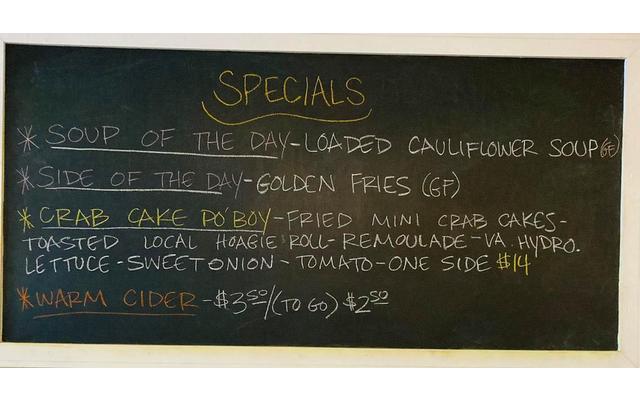 SPECIALS
* SOUP OF THE DAY-LOADED CAULIFLOWER SOUP (GF)
* SIDE OF THE DAY-GOLDEN FRIES (GF)
* CRAB CAKE PO'BOY-FRIED MINI CRAB CAKES-
TOASTED LOCAL HOAGIE ROLL-REMOULADE-VA. HYDRO.
LETTUCE-SWEET ONION-TOMATO-ONE SIDE $14
* WARM CIDER-$3.50/(TO GO) $2.50